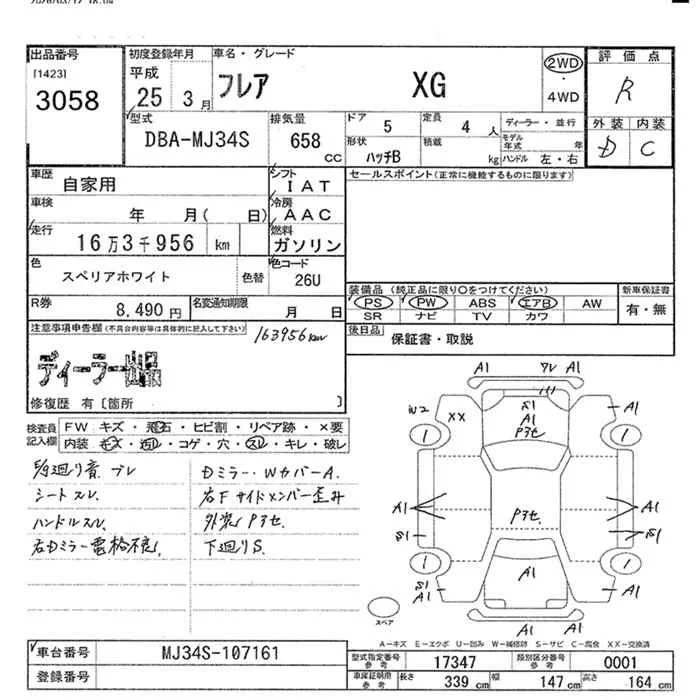 出品番号
[1423]
3058
初度登録年月
平成
25 3月
車名・グレード
フレア XG
2WD
・
4WD
評価点
R
外装 内装
D C
型式
DBA-MJ34S
排気量
658
cc
ドア 5
定員 4 人
形状
ハッチB
積載 kg
ディーラー・並行
モデル年式 年
ハンドル 左・右
車歴
自家用
シフト
I A T
セールスポイント(正常に機能するものに限ります)
車検
年 月( 日)
冷房
A A C
走行
16万3千956 km
燃料
ガソリン
色
スペリアホワイト
色替
色コード
26U
装備品(純正品に限り○をつけてください)
PS PW ABS エアB AW
SR ナビ TV カワ
新車保証書
有・無
R券
8,490 円
名変通知期限
月 日
後日品
保証書・取説
注意事項申告欄(不具合内容等は具体的に記入して下さい)
163956km
修復歴 有〔箇所 〕
検査員
記入欄
FW キズ・飛石・ヒビ割・リペア跡・×要
内装 キズ・汚レ・コゲ・穴・スレ・キレ・破レ
シートスレ
ハンドルスレ
右Dミラー電格不良
Dミラー・WカバーA
右Fサイドメンバー歪み
下廻りS
A1
A1
W2
XX
S1
A1
Pヌセ
A1
1
1
A1
Pヌセ
A1
S1
S1
1
1
A1
S1
A1
A1
A1
A1
スペア
A−キズ E−エクボ U−凹み W−補修跡 S−サビ C−腐食 XX−交換済
車台番号
MJ34S-107161
登録番号
型式指定番号
参考
17347
類別区分番号
参考
0001
車庫証明用
参考
長さ 339 cm
幅 147 cm
高さ 164 cm